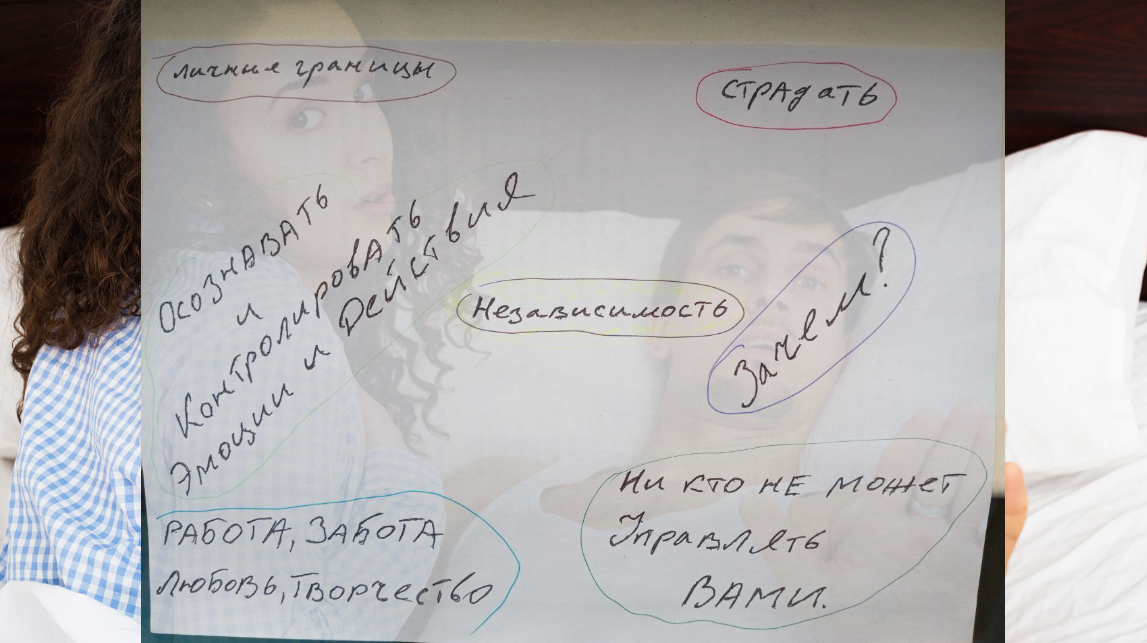 личные границы
страдать
Осознавать
и
Контролировать
Эмоции и Действия
Независимость
Зачем?
Ни кто не может
Управлять
Вами.
Работа, Забота
Любовь, Творчество